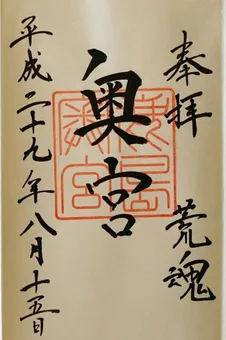 奉拝 荒魂
奥宮
平成二十九年八月十五日